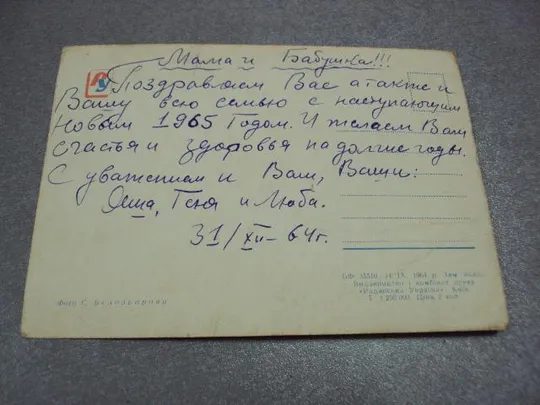 Мама и Бабушка!!!
РУ
Поздравляем Вас а также и
Вашу всю семью с наступающим
Новым 1965 Годом. И желаем Вам
счастья и здоровья на долгие годы.
С уважением к Вам, Ваши:
Геня и Люба.
31/XII-64г.
Фото С. Белозьорова
«Радянська Україна» Київ